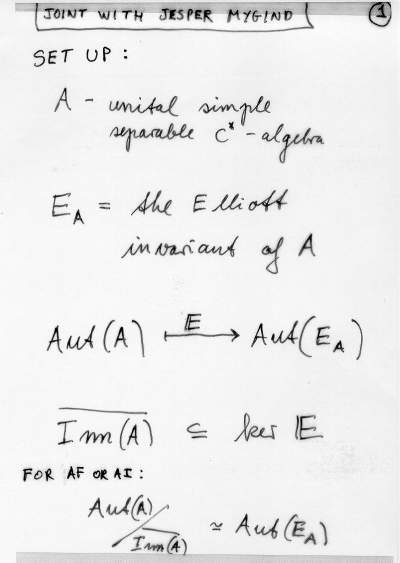 JOINT WITH JESPER MYGIND
1
SET UP:
A - unital simple
separable C*-algebra
E_A = the Elliott
invariant of A
Aut(A) ⟼ Aut(E_A)
𝔼
\overline{Inn(A)} ⊆ ker 𝔼
FOR AF OR AI:
Aut(A)/\overline{Inn(A)} ≃ Aut(E_A)